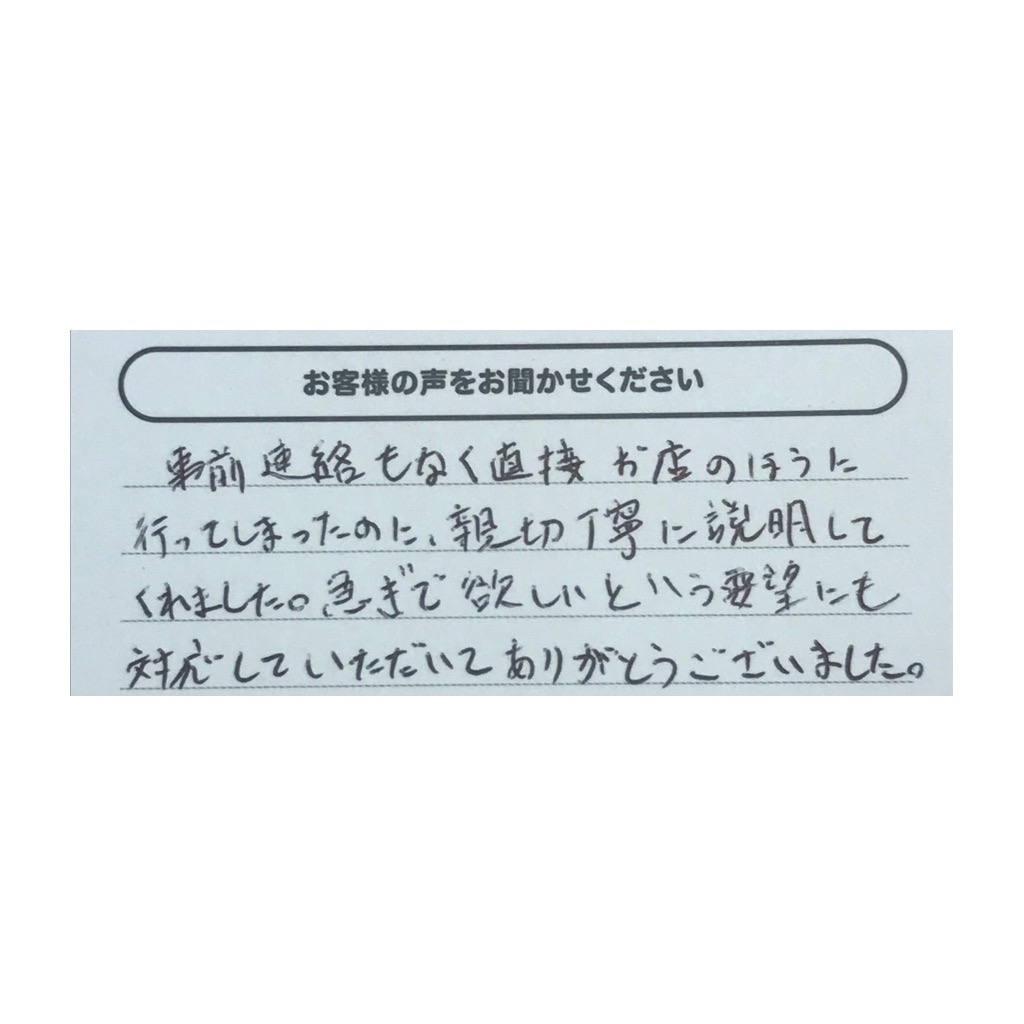 お客様の声をお聞かせください
事前連絡もなく直接お店のほうに
行ってしまったのに、親切丁寧に説明して
くれました。急ぎで欲しいという要望にも
対応していただいてありがとうございました。